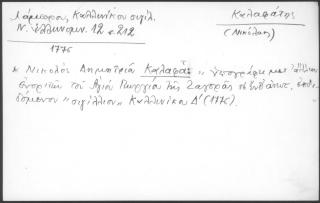 Λάμπρος, Καλλινίκου σιγίλ.
Ν. Ἑλληνομν. 12 σ. 212
Καλαφάτης
(Νικόλαος)
1776
Νικολὸς Δημητρίου Καλαφάτ "ὑπογράφει μετ' ἄλλων
ἐνοριτῶν τοῦ Ἁγίου Γεωργίου τῆς Ζαγορᾶς
δόμενον "σιγίλλιον" Καλλινίκου Δ' (1776).